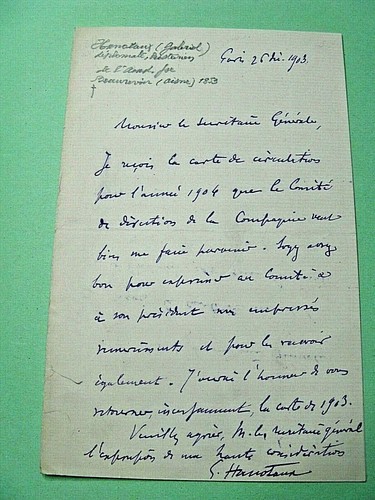 Hanotaux (Gabriel)
diplomate, historien
de l'Acad. fse
Beaurevoir (Aisne) 1853
Paris 26 Déc. 1903.
Monsieur le Secrétaire Générale,
Je reçois la carte de circulation
pour l'année 1904 que le Comité
de direction de la Compagnie veut
bien me faire parvenir. Soyez assez
bon pour exprimer au Comité &
à son président mes empressés
remerciements et pour les recevoir
également. J'aurai l'honneur de vous
retourner, incessamment, la carte de 1903.
Veuillez agréer, M. le secrétaire général
l'expression de ma haute considération
G. Hanotaux